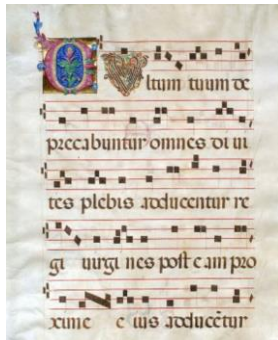 VUltum tuum de
precabuntur omnes di ui
tes plebis adducentur re
gi uirgi nes post e am pro
xime e ius adducētur